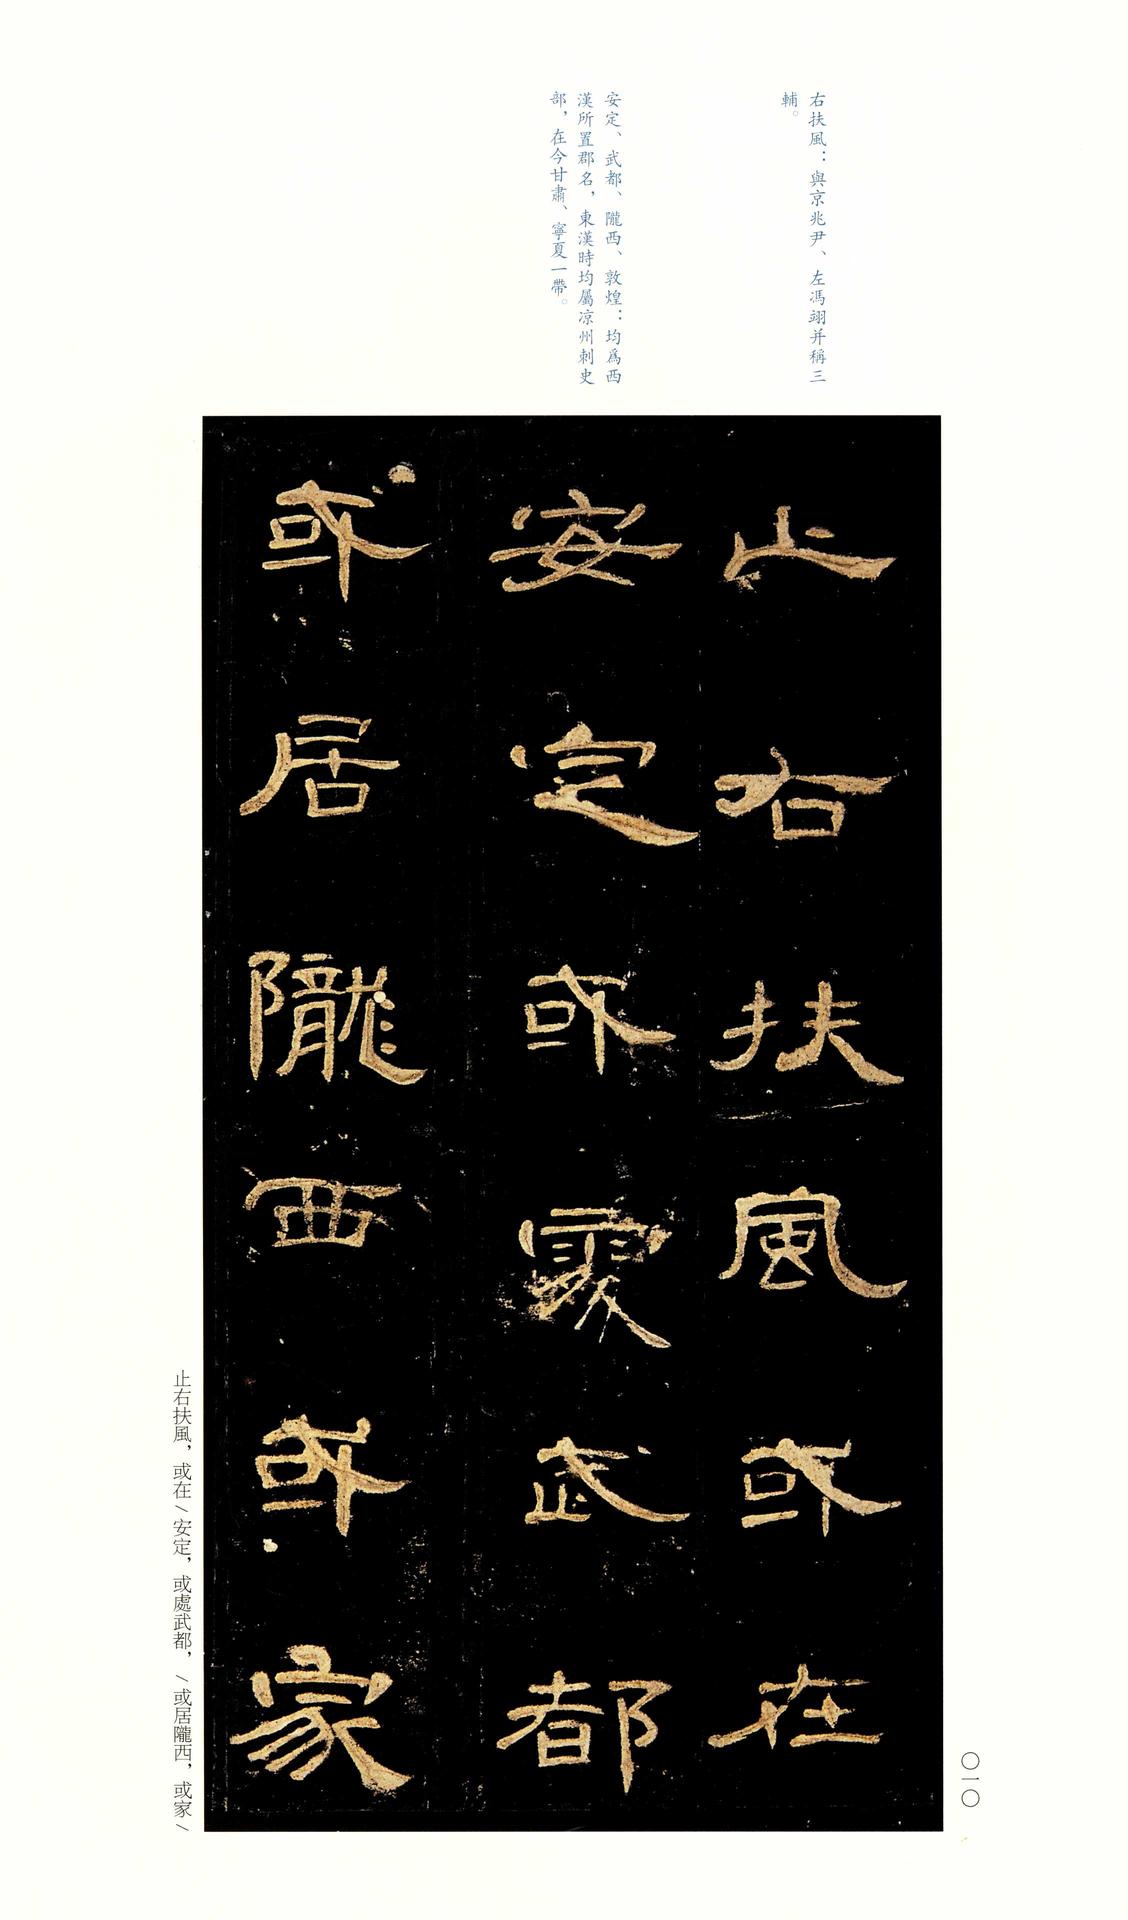 右扶風：與京兆尹、左馮翊并稱三
輔。
安定、武都、隴西、敦煌：均爲西
漢所置郡名，東漢時均屬凉州刺史
部，在今甘肅、寧夏一帶。
止右扶風或在
安定或處武都
或居隴西或家
止右扶風，或在/安定，或處武都，/或居隴西，或家/
〇一〇